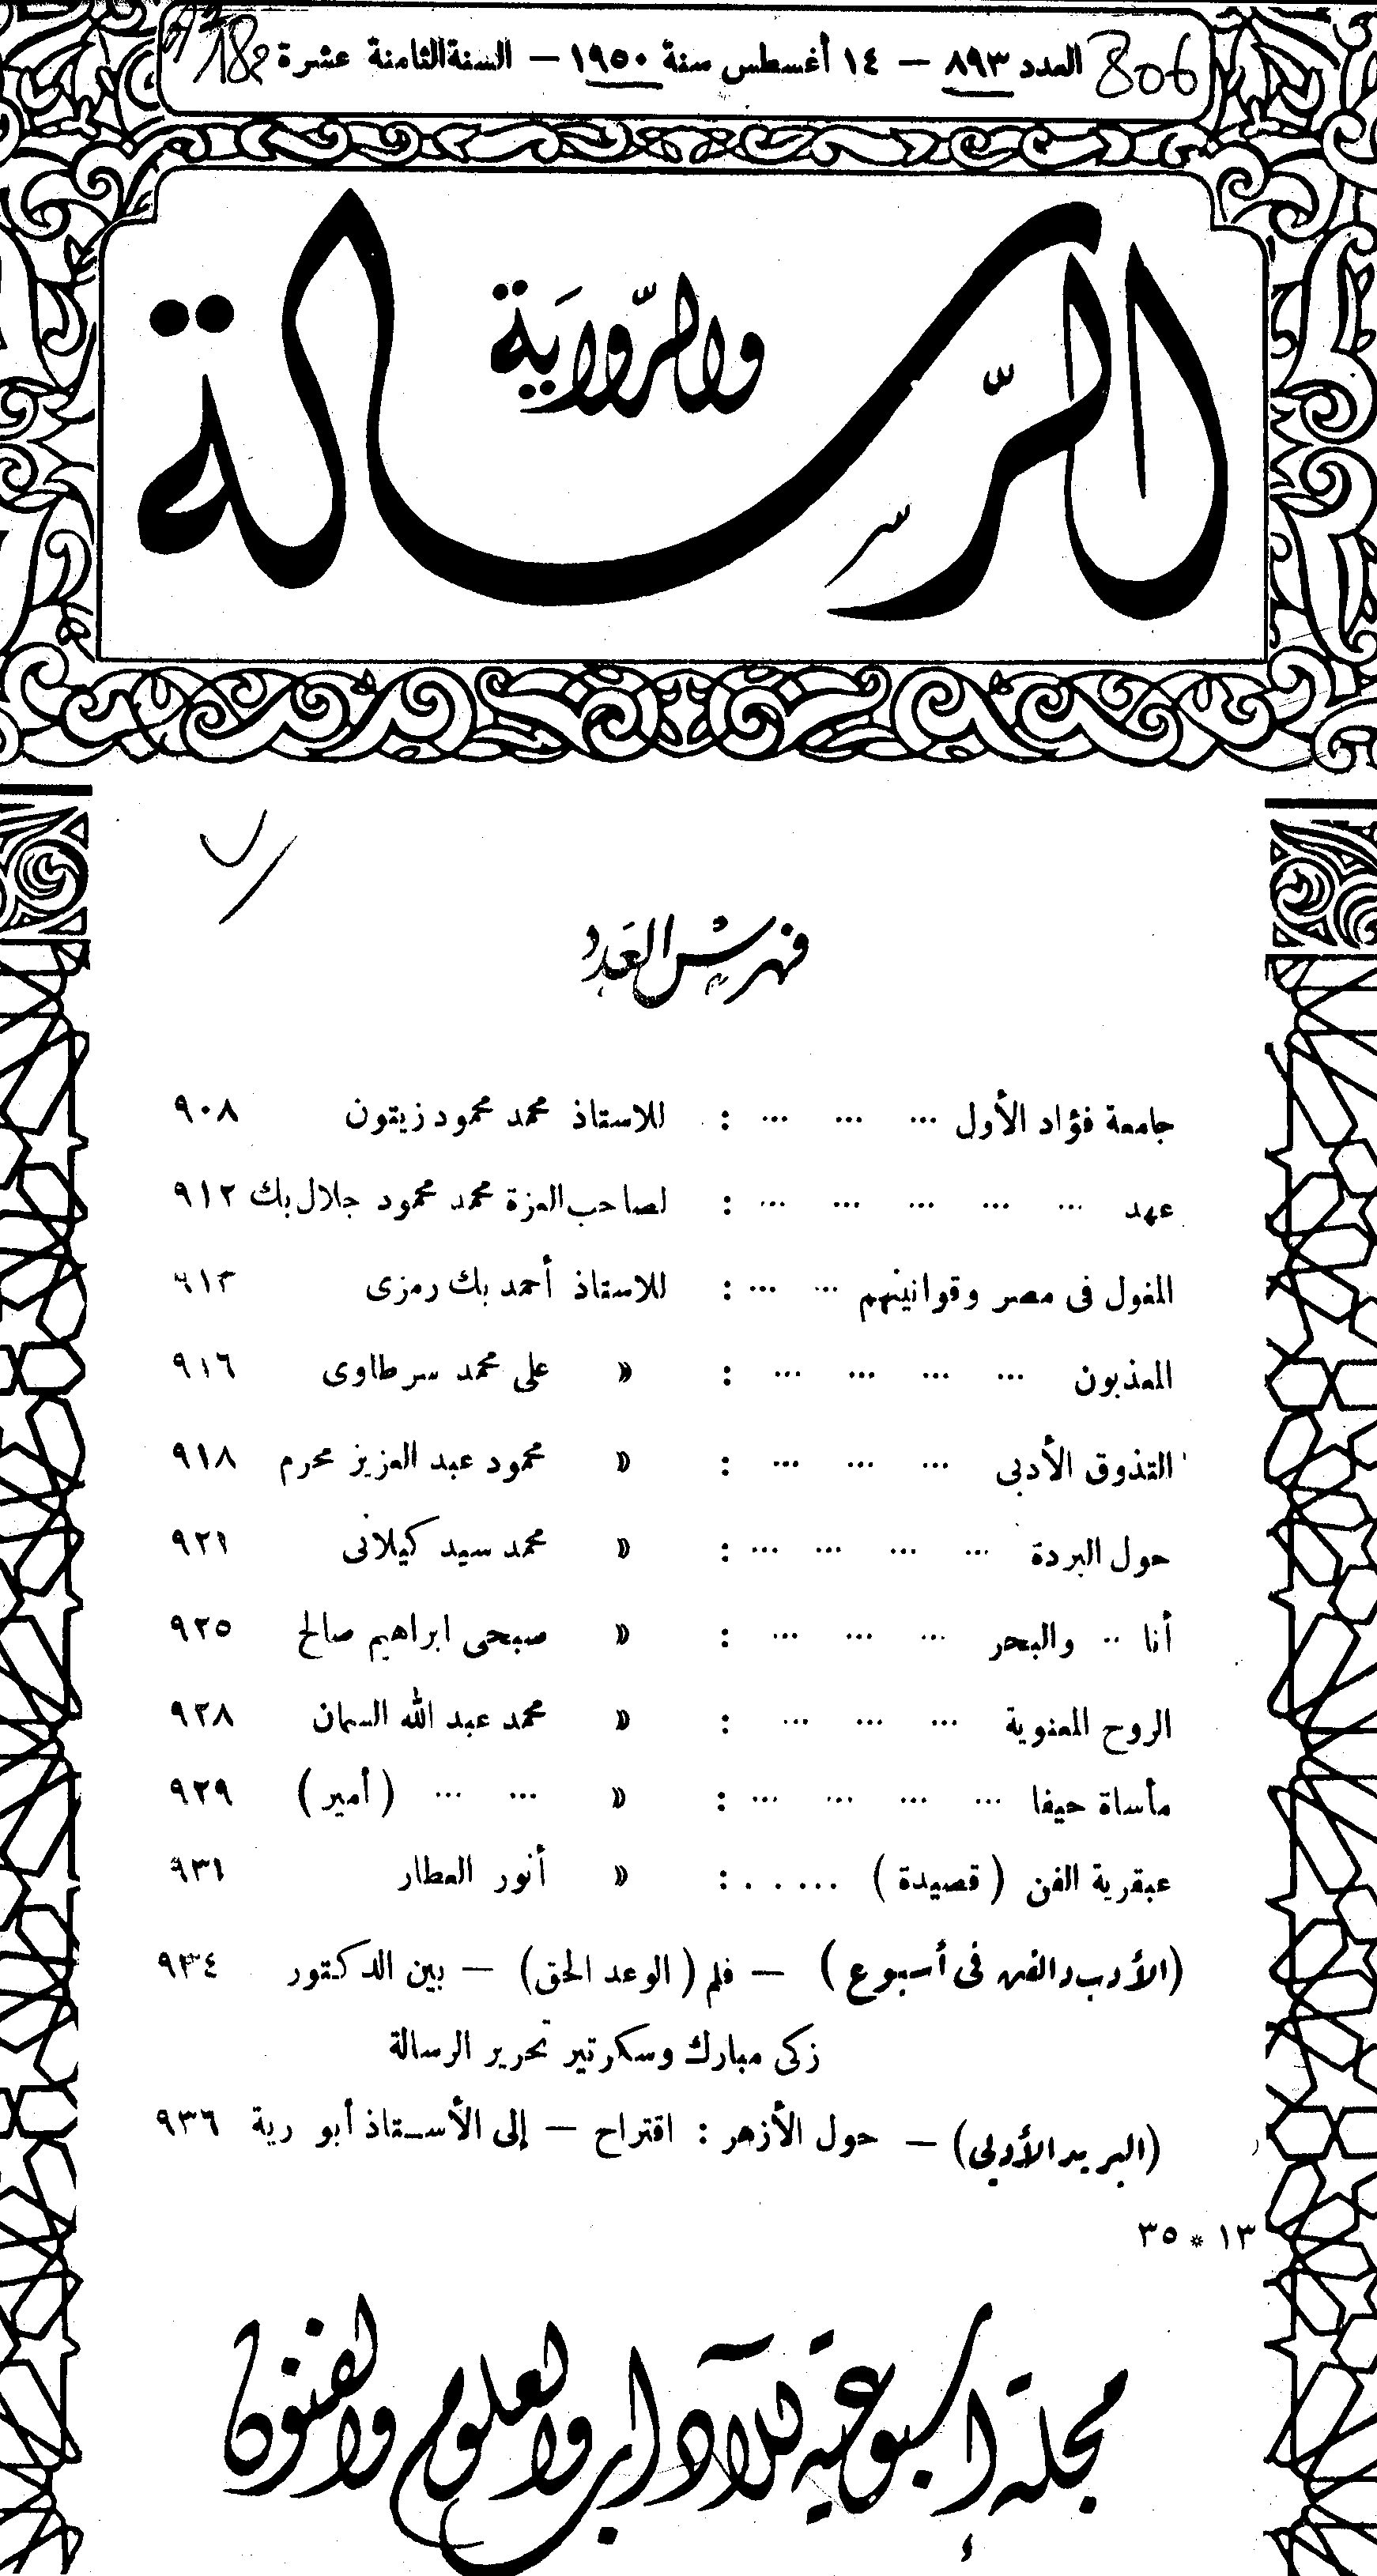 806 العدد ٨٩٣ — ١٤ أغسطس سنة ١٩٥٠ — السنة الثامنة عشرة
الرسالة
والرواية
فهرس العدد
جامعة فؤاد الأول ... ... ... : للاستاذ محمد محمود زيتون ٩٠٨
عهد ... ... ... ... ... : لصاحب العزة محمد محمود جلال بك ٩١٢
المغول فى مصر وقوانينهم ... ... : للاستاذ أحمد بك رمزى ٩١٣
المعذبون ... ... ... ... : » على محمد سرطاوى ٩١٦
التذوق الأدبى ... ... ... : » محمود عبد العزيز محرم ٩١٨
حول البردة ... ... ... ... : » محمد سيد كيلانى ٩٢١
أنا .. والبحر ... ... ... : » صبحى ابراهيم صالح ٩٢٥
الروح المعنوية ... ... ... : » محمد عبد الله السمان ٩٢٨
مأساة حيفا ... ... ... ... : » ... ... ( أمير ) ٩٢٩
عبقرية الفن ( قصيدة ) ... . . . : » أنور العطار ٩٣١
(الأدب والفن فى أسبوع ) — فلم ( الوعد الحق) — بين الدكتور ٩٣٤
زكى مبارك وسكرتير تحرير الرسالة
(البريد الأدبى) — حول الأزهر : اقتراح — إلى الأستاذ أبو رية ٩٣٦
١٣ * ٣٥
مجلة أسبوعية للآداب والعلوم والفنون